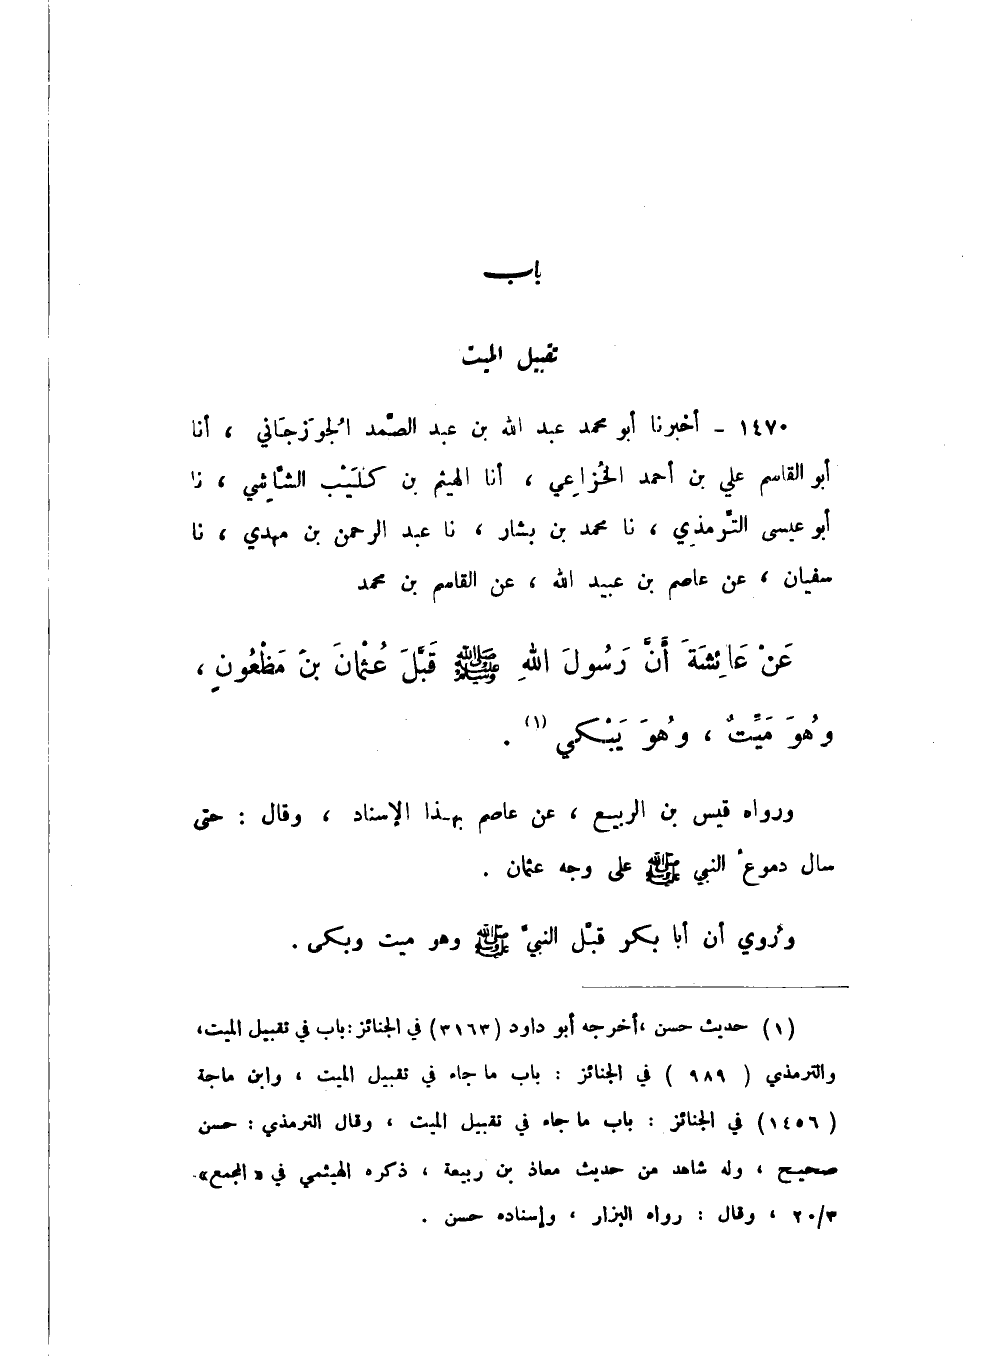 باب
تقبيل الميت
١٤٧٠ - أخبرنا أبو محمد عبد الله بن عبد الصَّمد الجَوزجَاني ، أنا
أبو القاسم علي بن أحمد الخُزاعي ، أنا الهيثم بن كُلَيْب الشَّاشي ، نا
أبو عيسى التِّرمذي ، نا محمد بن بشار ، نا عبد الرحمن بن مهدي ، نا
سفيان ، عن عاصم بن عبيد الله ، عن القاسم بن محمد
عَنْ عَائِشَةَ أَنَّ رَسُولَ اللهِ ﷺ قَبَّلَ عُثْمَانَ بنَ مَظْعُونٍ ،
وهُوَ مَيِّتٌ ، وهُوَ يَبْكي (١) .
ورواه قيس بن الربيع ، عن عاصم بهذا الإسناد ، وقال : حتى
سال دموعُ النبي ﷺ على وجه عثمان .
ورُوي أن أبا بكر قبّل النبيَّ ﷺ وهو ميت وبكى .
(١) حديث حسن ، أخرجه أبو داود (٣١٦٣) في الجنائز : باب في تقبيل الميت ،
والترمذي ( ٩٨٩ ) في الجنائز : باب ما جاء في تقبيل الميت ، وابن ماجة
(١٤٥٦) في الجنائز : باب ما جاء في تقبيل الميت ، وقال الترمذي : حسن
صحيح ، وله شاهد من حديث معاذ بن ربيعة ، ذكره الهيثمي في « المجمع »
٢٠/٣ ، وقال : رواه البزار ، وإسناده حسن .